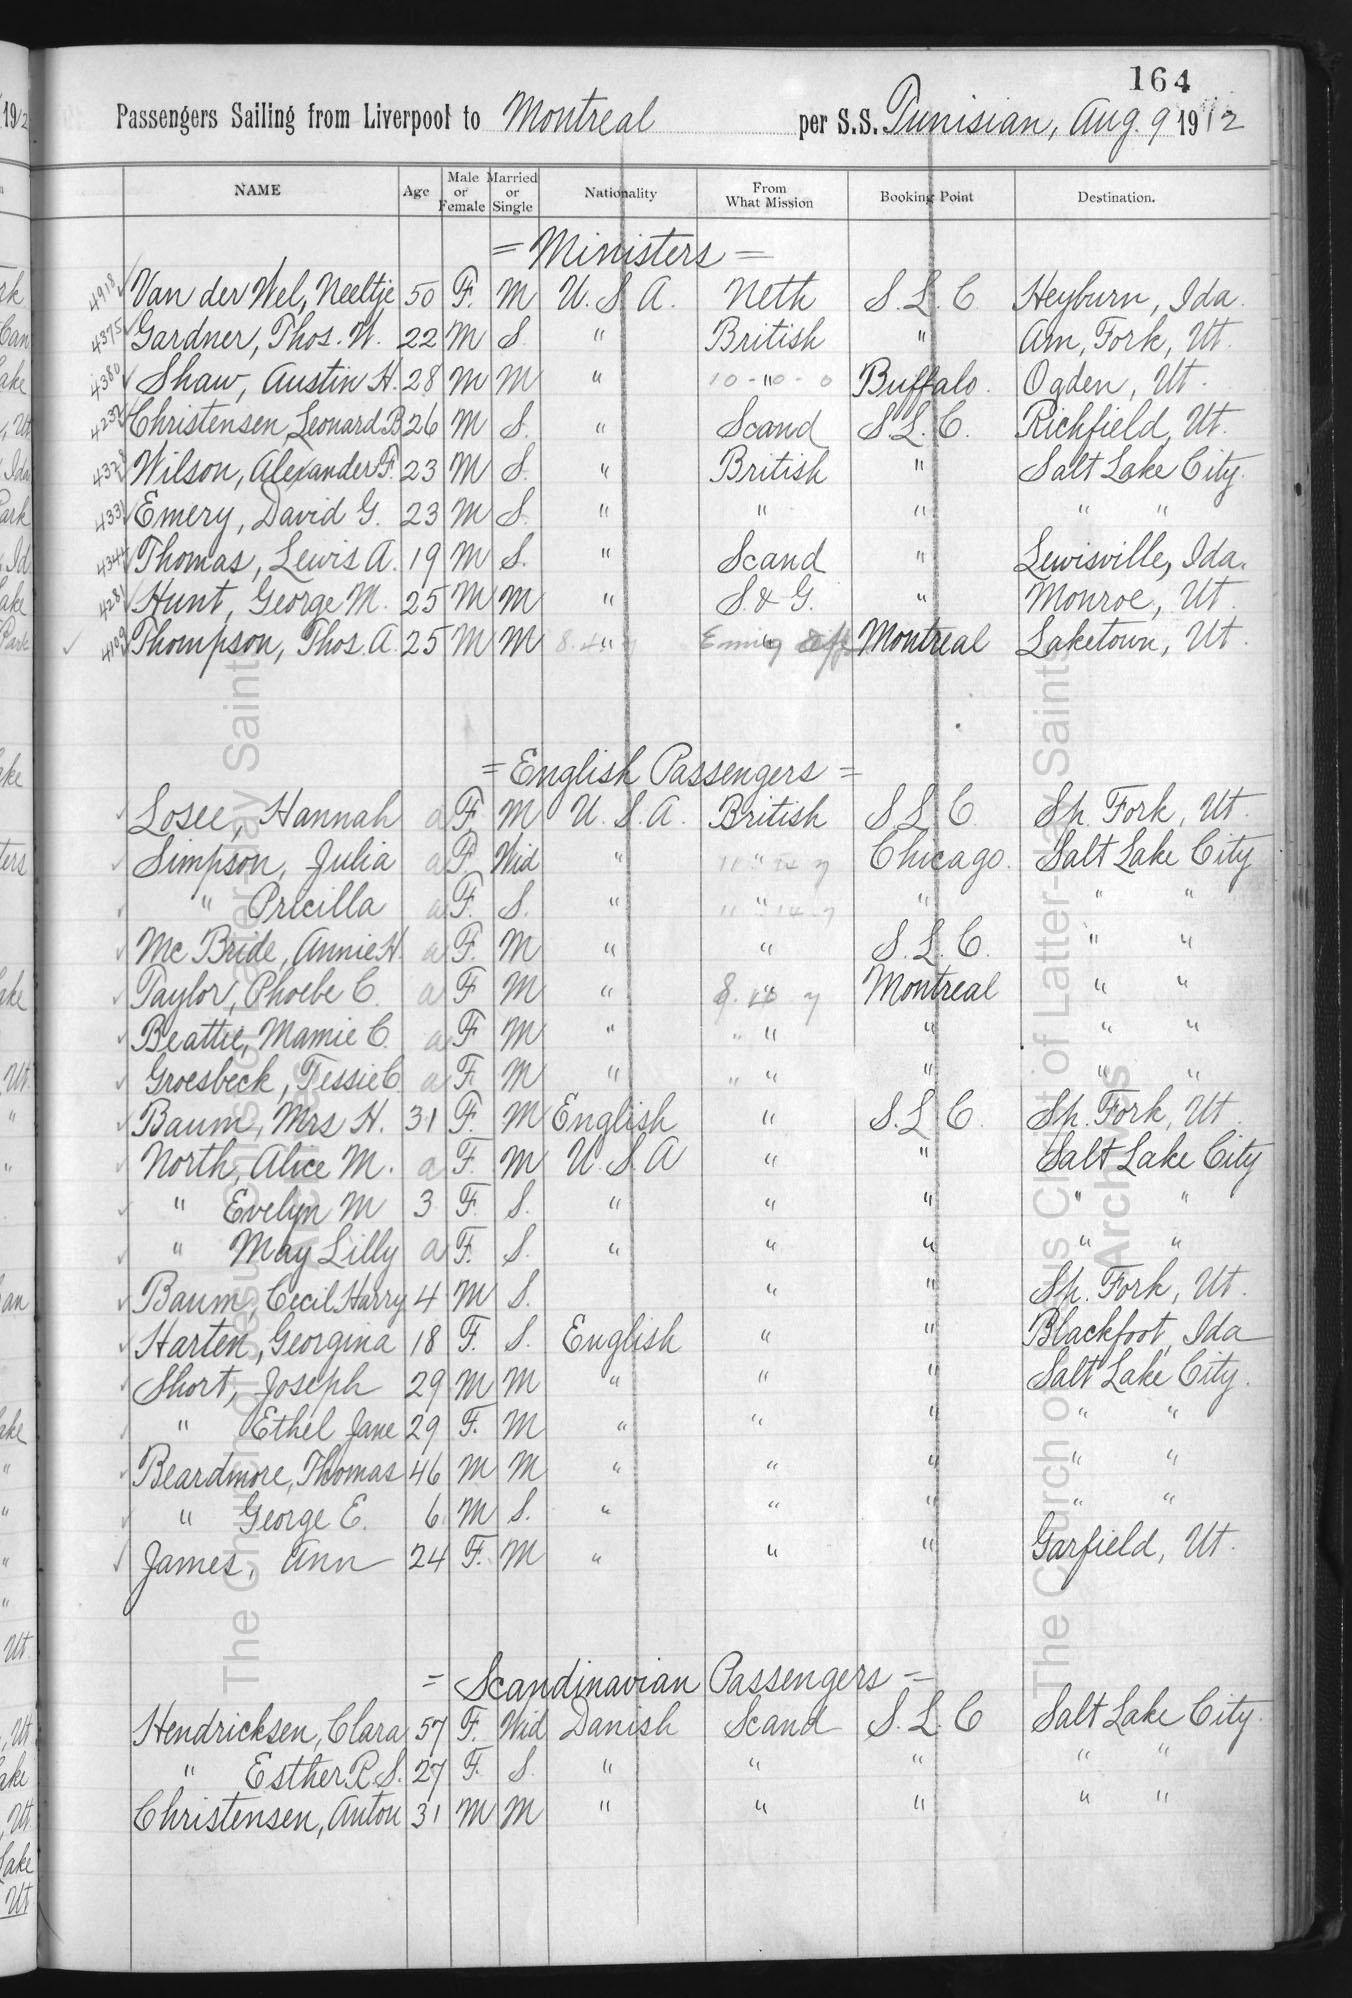 164
Passengers Sailing from Liverpool to Montreal per S.S. Tunisian, Aug. 9 1912
NAME Age Male or Female Married or Single Nationality From What Mission Booking Point Destination.
= Ministers =
4918 ✓ Van der Wel, Neeltje 50 F. M U. S. A. Neth S. L. C. Heyburn, Ida.
4375 ✓ Gardner, Thos. W. 22 M S. " British " Am. Fork, Ut.
4380 ✓ Shaw, Austin H. 28 M M " 10-"10-0 Buffalo. Ogden, Ut.
4232 ✓ Christensen, Leonard B 26 M S. " Scand S. L. C. Richfield, Ut.
4328 ✓ Wilson, Alexander F. 23 M S. " British " Salt Lake City.
4331 ✓ Emery, David G. 23 M S. " " " " "
4344 ✓ Thomas, Lewis A. 19 M S. " Scand " Lewisville, Ida.
4281 ✓ Hunt, George M. 25 M M " S. & G. " Monroe, Ut.
✓ 4109 ✓ Thompson, Thos. A. 25 M M " " Montreal Laketown, Ut.
= English Passengers =
✓ Losee, Hannah a F. M U. S. A. British S. L. C. Sp. Fork, Ut.
✓ Simpson, Julia a F. Wid " " Chicago. Salt Lake City
✓ " Pricilla a F. S. " " " " "
✓ Mc Bride, Annie H. a F. M " " S. L. C. " "
✓ Taylor, Phoebe C. a F M " " Montreal " "
✓ Beattie, Mamie C. a F M " " " " " "
✓ Groesbeck, Tessie C a F. M " " " " " "
✓ Baum, Mrs H. 31 F. M English " S. L. C. Sp. Fork, Ut.
✓ North, Alice M. a F. M U. S. A " " Salt Lake City
✓ " Evelyn M 3 F. S. " " " " "
✓ " May Lilly a F. S. " " " " "
✓ Baum, Cecil Harry 4 M S. " " Sp. Fork, Ut.
✓ Harten, Georgina 18 F. S. English " " Blackfoot, Ida
✓ Short, Joseph 29 M M " " " Salt Lake City.
✓ " Ethel Jane 29 F. M " " " " "
✓ Beardmore, Thomas 46 M M " " " " "
✓ " George E. 6 M S. " " " " "
✓ James, Ann 24 F. M " " " Garfield, Ut.
= Scandinavian Passengers =
Hendricksen, Clara 57 F. Wid Danish Scand S. L. C Salt Lake City.
" Esther R. S. 27 F. S. " " " " "
Christensen, Anton 31 M M " " " " "
The Church of Jesus Christ of Latter-day Saints
Archives
The Church of Jesus Christ of Latter-day Saints
Archives